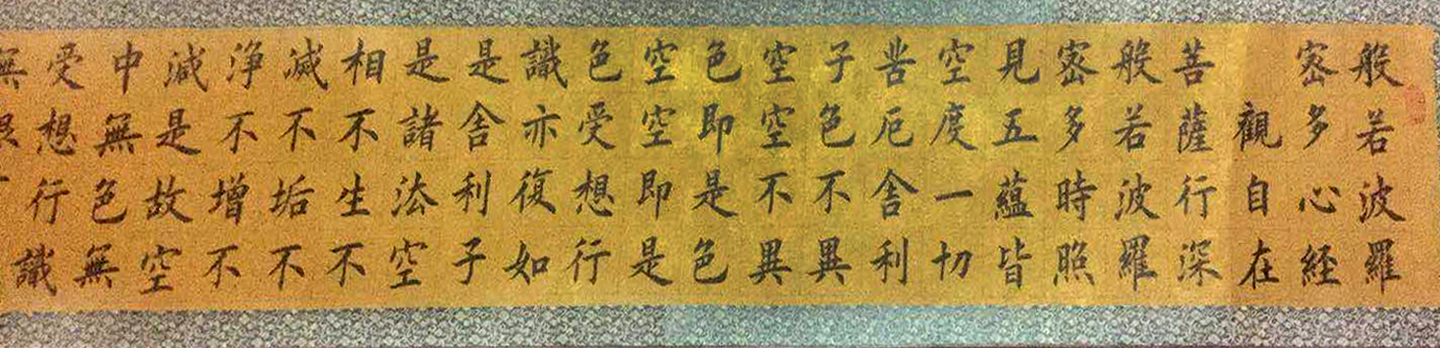 般若波羅
密多心経
觀自在
菩薩行深
般若波羅
密多時照
見五蘊皆
空度一切
苦厄舍利
子色不異
空空不異
色即是色
空空即是
色受想行
識亦復如
是舍利子
是諸法空
相不生不
滅不垢不
淨不增不
減是故空
中無色無
受想行識
無